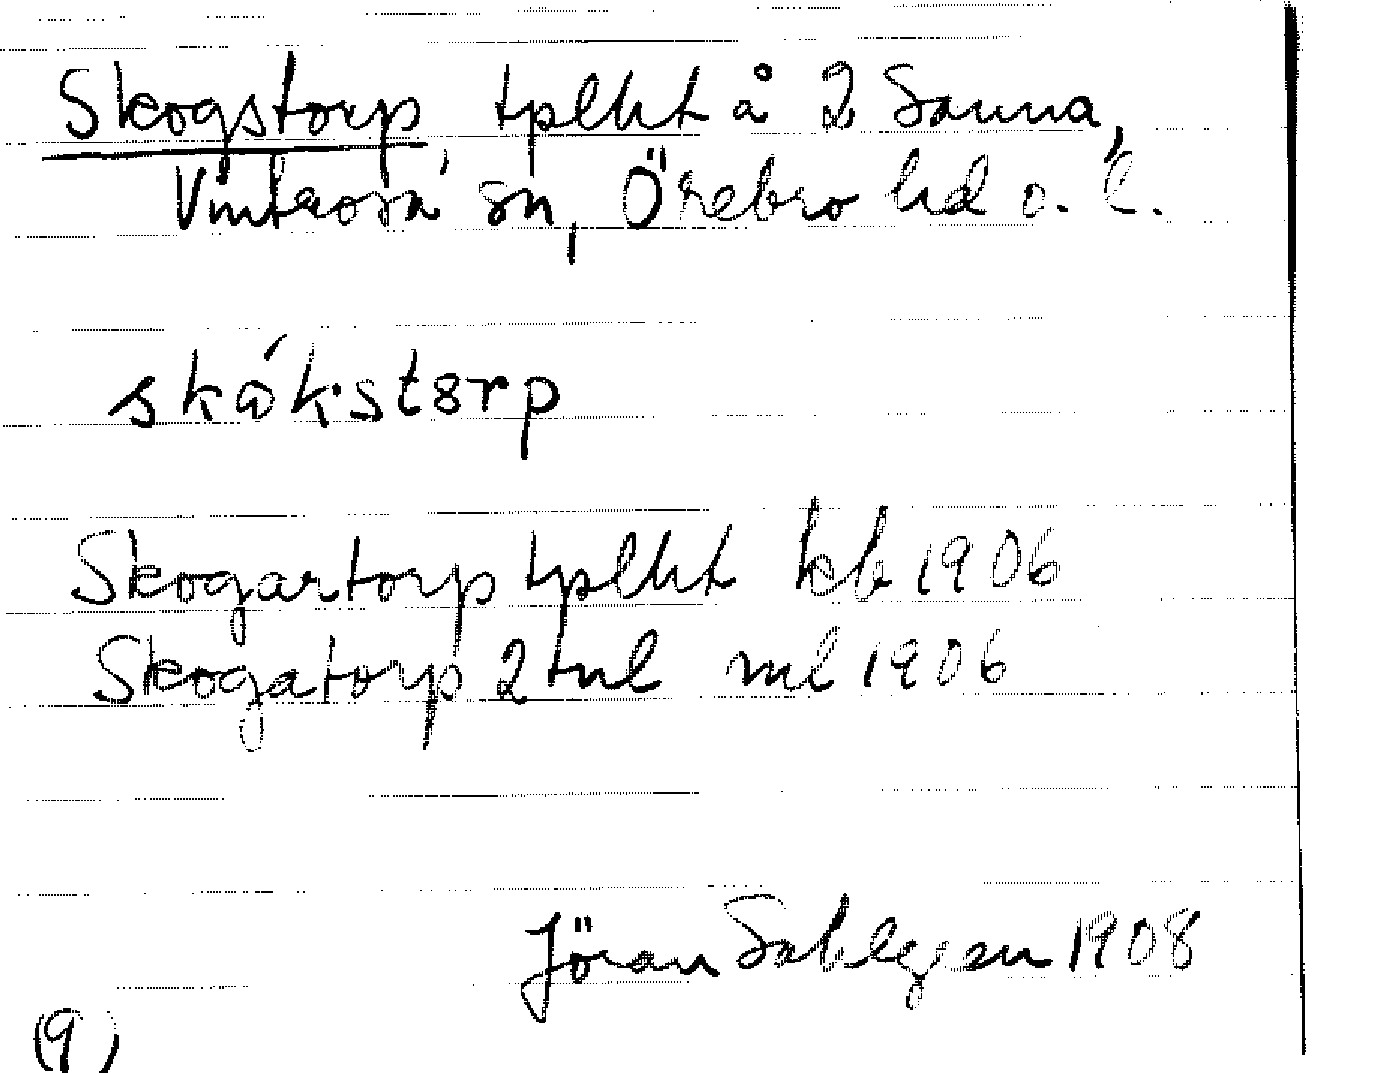 Skogstorp, tplht å 2 Sanna,
Vintrosa sn, Örebro hd o. l.
skǻk·stɜrp
Skogartorp tplht kb 1906
Skogatorp 2 tnl ml 1906
Jöran Sahlgren 1908
(9)